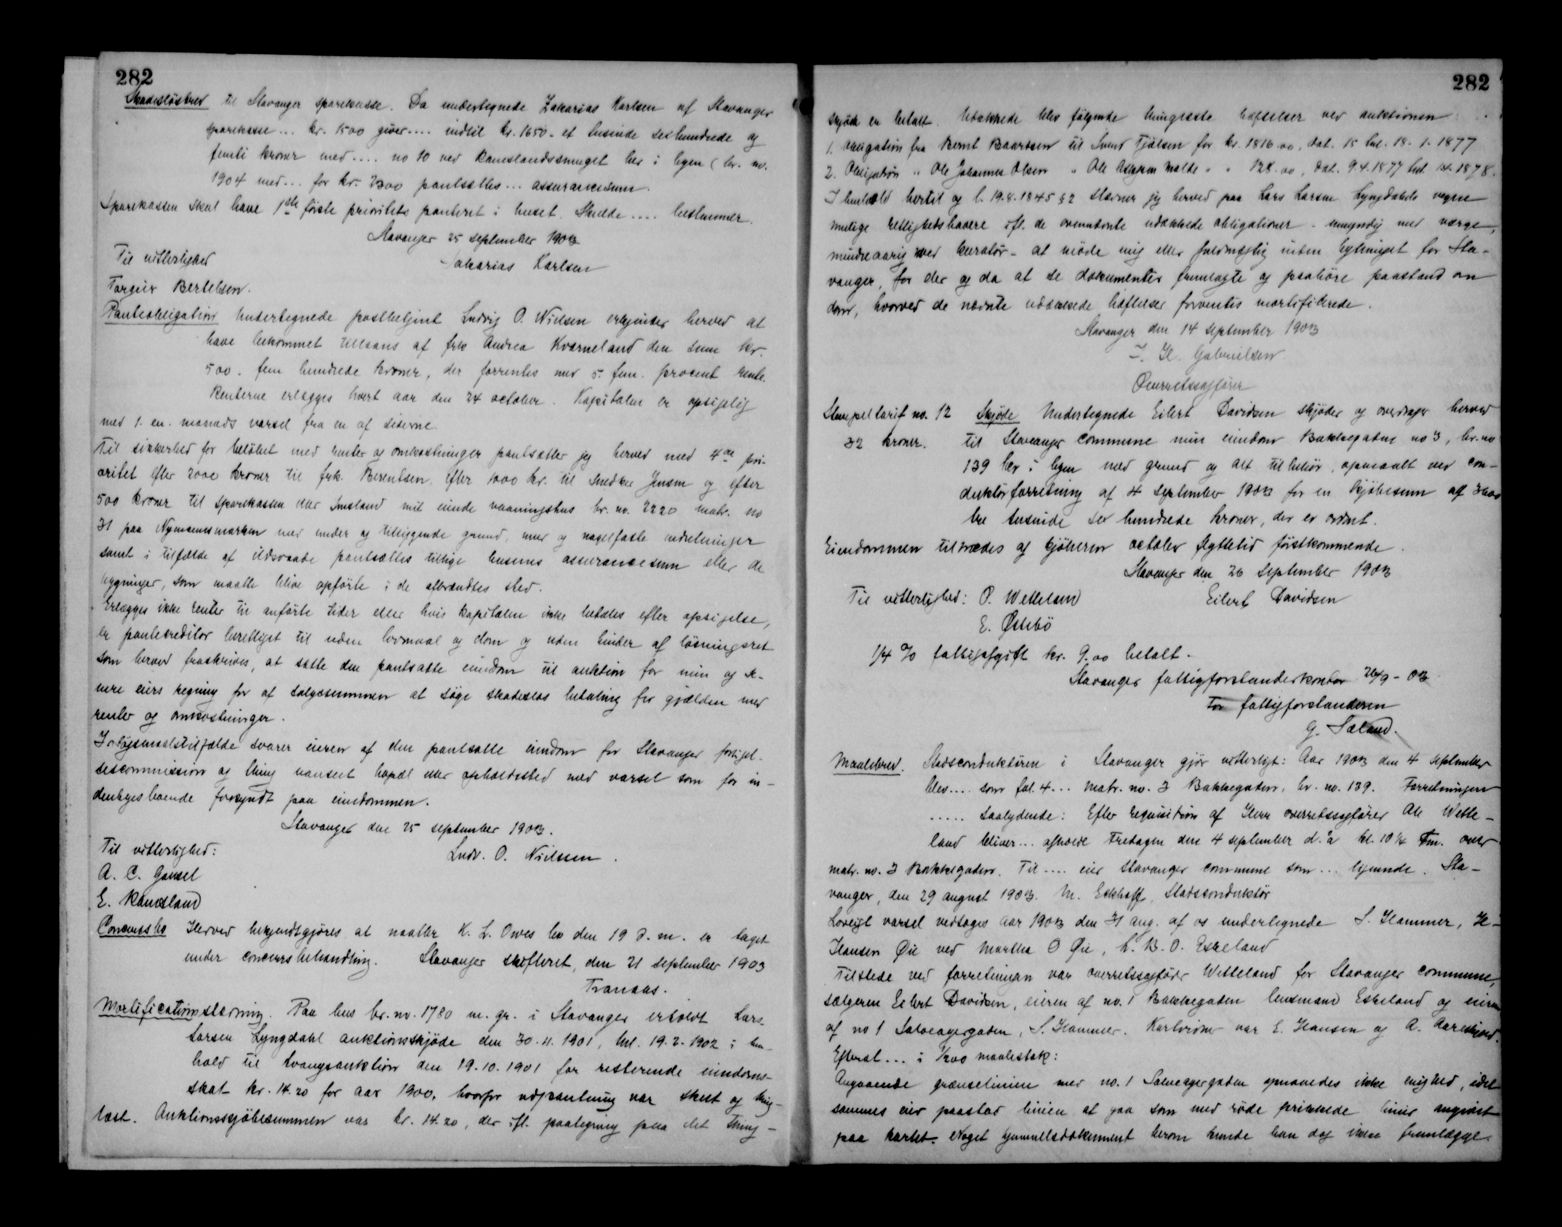 282
Skadesløsbrev til Stavanger sparekasse. Da undertegnede Zakarias Karlsen af Stavanger
sparekasse ... kr. 1500 giver .... indtil kr. 1650 - et tusinde sexhundrede og
femti kroner med .... no 10 ved Ramslandssmuget her i byen (br. no.
1904 med ... for kr. 2300 pantsættes ... assurancesum.
Sparekassen skal have 1ste første prioritets panteret i huset. Skulde .... bestemmer.
Stavanger 25 september 1903
Til vitterlighed
Zakarias Karlsen
Torgeir Bertelsen.
Panteobligation Undertegnede postbetjent Ludvig O. Nielsen erkjender herved at
have bekommet tillaans af frk Andrea Kvarneland den sum kr.
500. fem hundrede kroner, der forrentes med 5. fem. procent rente.
Renterne erlægges hvert aar den 24 october. Kapitalen er opsigelig
med 1. en. maaneds varsel fra en af siderne.
Til sikkerhed for beløbet med renter og omkostninger pantsætter jeg herved med 4de pri-
oritet efter 2000 kroner til frk. Berentsen, efter 1000 kr. til Jensen og efter
500 kroner til sparekassen mit eiende vaaningshus br. no. 2220 matr. no
31 paa Nymansmarken med under og tilliggende grund, mur og nagelfaste indretninger
samt i tilfælde af ildsvaade pantsættes tillige husets assurancesum eller de
bygninger, som maatte blive opførte i de afbrændtes sted.
Erlægges ikke renter til anførte tider eller hvis kapitalen ikke betales efter opsigelse,
er pantecreditor berettiget til uden lovmaal og dom og uden hinder af løsningsret
som herved fraskrives, at sætte den pantsatte eiendom til auktion for min og se-
nere eiers regning for af salgssummen at søge skadesløs betaling for gjælden med
renter og omkostninger.
I søgsmaalstilfælde svarer eieren af den pantsatte eiendom for Stavanger forligel-
sescommission og thing uanseet bopæl eller opholdssted med varsel som for in-
denbyesboende forkyndt paa eiendommen.
Stavanger den 25 september 1903.
Til vitterlighed:
Ludv. O. Nielsen.
A. C. Gausel
E. Ramsland
Concursbo Herved bekjendtgjøres at K. L. Owes bo den 19 d. m. er taget
under concursbehandling. Stavanger skifteret, den 21 september 1903
Tranaas.
Mortificationsstævning. Paa hus br. no. 1780 m. gr. i Stavanger erholdt Lars
Larsen Lyngdahl auktionsskjøde den 30.11.1901, tnl. 19.2.1902 i hen-
hold til tvangsauktion den 19.10.1901 for resterende eiendoms-
skat kr. 14.20 for aar 1900, hvorfor udpantning var skeet og thing-
læst. Auktionskjøbesummen var kr. 14.20, der ifl. paategning paa det thing-
282
skjøde er betalt. Udækkede blev følgende tinglæste hæftelser ved auktionen
1. Obligation fra Bernt Baardsen til Svend Tjølsen for kr. 1816.00, dat. 15 tnl. 18.1.1877
2. Obligation " Ole Johannes Olsen " Ole Malde " " 128.00, dat. 9.4.1877 tnl. 1878.
I henhold hertil og l. 19.8.1845 § 2 stævner jeg herved paa Lars Larsen Lyngdahls vegne
mulige rettighedshavere ifl. de ovennævnte udækkede obligationer - umyndig med værge,
mindreaarig med kurator - at møde mig eller fuldmægtig inden bythinget for Sta-
vanger, for der og da at se dokumenter fremlagte og paahøre paastand om
dom, hvorved de nævnte udækkede hæftelser forventes mortificerede.
Stavanger den 14 september 1903
Gabrielsen
Overretssagfører
Stempeltarif no. 12
32 kroner.
Skjøde Undertegnede Eilert Davidsen skjøder og overdrager herved
til Stavanger commune min eiendom Bakkegaden no 3, br. no
139 her i byen med grund og alt tilbehør, opmaalt ved con-
duktørforretning af 4 september 1903 for en kjøbesum af 3600
tre tusinde sex hundrede kroner, der er ordnet.
Eiendommen tiltrædes af kjøberen october flyttetid førstkommende.
Stavanger den 26 september 1903
Til vitterlighed: O. Wetteland
Eilert Davidsen
E. Østebø
1/4 % fattigafgift kr. 9.00 betalt.
Stavanger fattigforstanderkontor 26/9 - 03
For fattigforstanderen
G. Søland.
Maalebrev. Stadsconduktøren i Stavanger gjør vitterligt: Aar 1903 den 4 september
blev .... som fol. 4 ... matr. no. 3 Bakkegaden, br. no. 139. Forretningen
..... saalydende: Efter requisition af Herr overretssagfører Ole Wette-
land bliver ... afholdt Fredagen den 4 september d. a. kl. 10 1/2 Fm. over
matr. no. 3 Bakkegaden. Til .... eier Stavanger commune som ... lignende. Sta-
vanger, den 29 august 1903. M. Eckhoff, Stadsconduktør
Lovligt varsel vedtages aar 1903 den 31 aug. af os undertegnede S. Hammer, H-
Hansen Øie ved Martha O Øie, B. O. Eskeland
Tilstede ved forretningen var overretssagfører Wetteland for Stavanger commune,
sælgeren Eilert Davidsen, eieren af no. 1 Bakkegaden lensmand Eskeland og eieren
af no 1 Salvagergaden, S. Hammer. Kartvidner var E. Hansen og A. Aarrestad.
Efterat ... i 1/200 maalestok:
Angaaende grænselinien med no. 1 Salvagergaden opnaaedes ikke enighed, idet
sammes eier paastod linien at gaa som med røde prikkede linier angivet
paa kartet. Noget hjemmelsdokument herom kunde han dog ikke fremlægge.